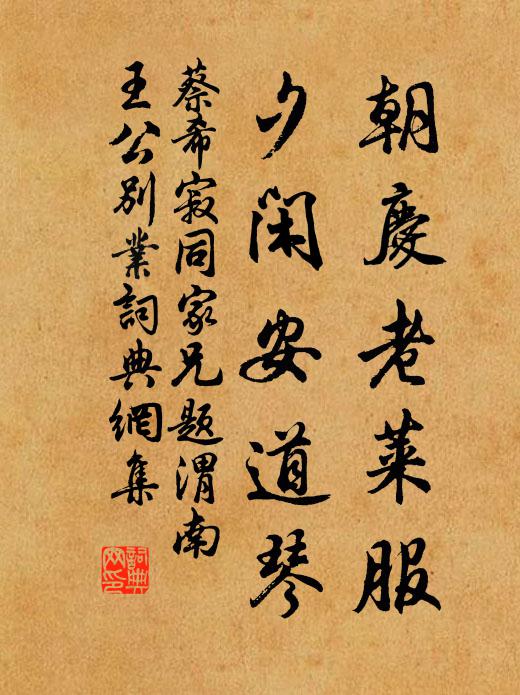 朝慶老萊服
夕閑安道琴
蔡希寂同家兄題渭南
王公別業詞典網集
詞典網印